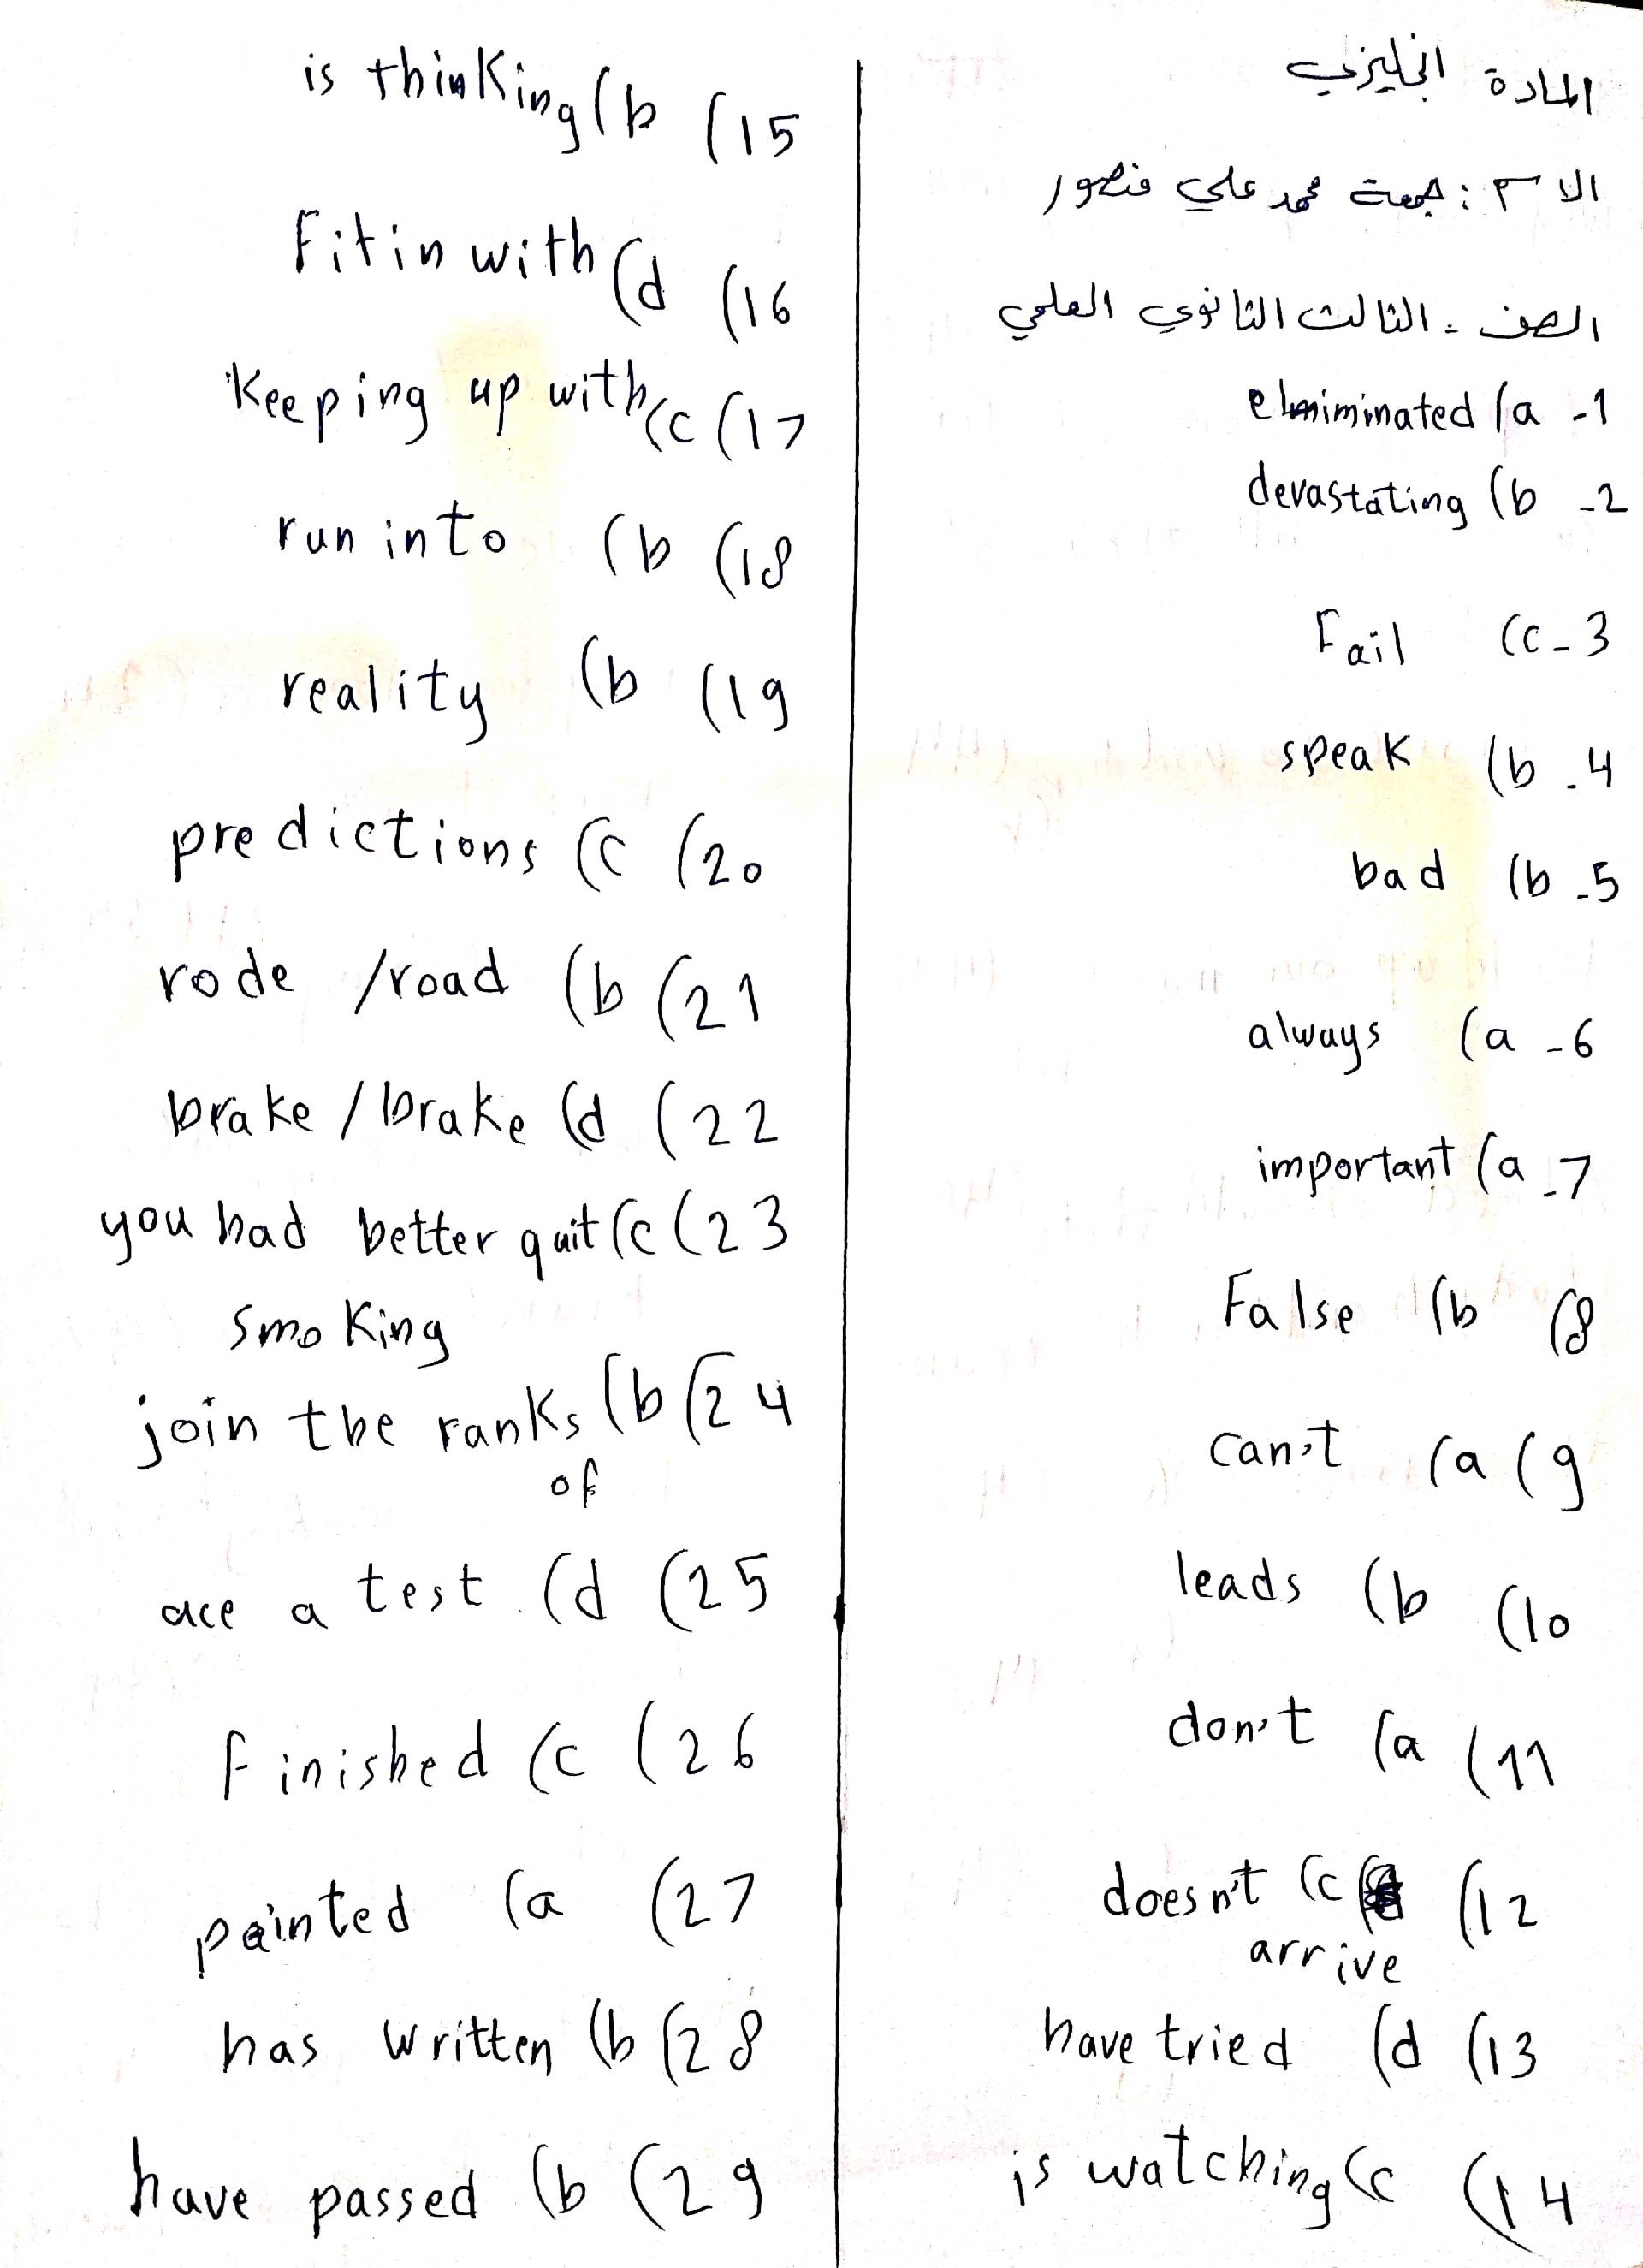 المادة انجليزي
الاسم : جمعة محمد علي منصور
الصف : الثالث الثانوي العلمي
1- a) elmiminated
2- b) devastating
3- c) Fail
4- b) speak
5- b) bad
6- a) always
7- a) important
8) b) False
9) a) can't
10) b) leads
11) a) don't
12) c) doesn't
arrive
13) d) have tried
14) c) is watching
15) b) is thinking
16) d) Fit in with
17) c) Keeping up with
18) b) run into
19) b) reality
20) c) predictions
21) b) rode / road
22) d) brake / brake
23) c) you had better quit
smoking
24) b) join the ranks
of
25) d) ace a test
26) c) finished
27) a) painted
28) b) has written
29) b) have passed